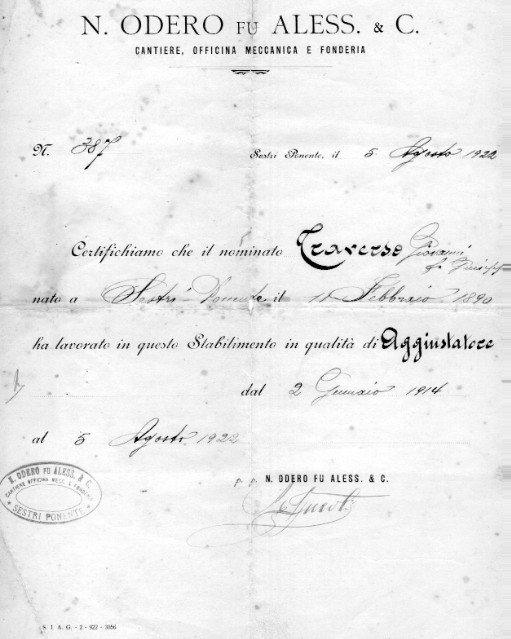 N. ODERO FU ALESS. & C.
CANTIERE, OFFICINA MECCANICA E FONDERIA
N. 387
Sestri Ponente, il 5 Agosto 1922
Certifichiamo che il nominato Traverso Giovanni
nato a Sestri Ponente il 11 Febbraio 1890
ha lavorato in questo Stabilimento in qualità di Aggiustatore
dal 2 Gennaio 1914
al 5 Agosto 1922
p. p. N. ODERO FU ALESS. & C.
N. ODERO FU ALESS. & C.
CANTIERE OFFICINA MECC. E FONDERIA
SESTRI PONENTE
S. I. A. G. - 2 - 922 - 3896